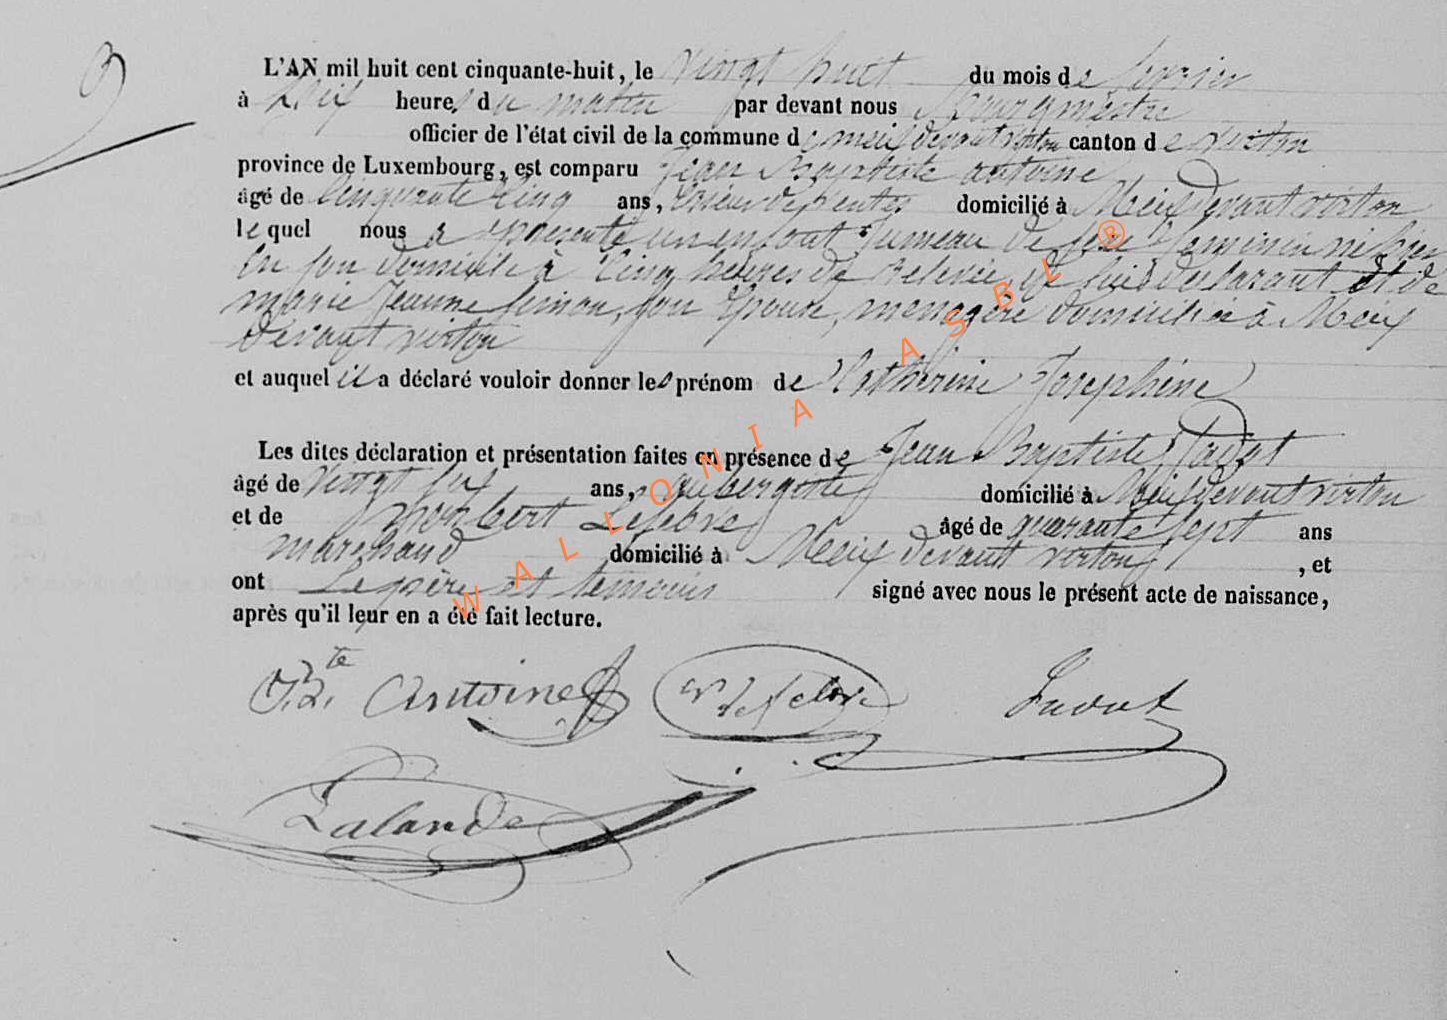 9
L'AN mil huit cent cinquante-huit, le vingt huit du mois de fevrier
à dix heures du matin par devant nous Bourgmestre
officier de l'état civil de la commune de meix devant virton canton de virton
province de Luxembourg, est comparu Jean Baptiste antoine
âgé de Cinquante Cinq ans, domicilié à Meix devant virton
lequel nous a épresenté un enfant Jumeau de sexe feminin né hier
en son domicile à Cinq heures de relevée, de lui declarant et de
marie Jeanne Simon, son épouse, menagère domiciliée à Meix
devant virton
et auquel il a déclaré vouloir donner les prénom de Catherine Josephine
Les dites déclaration et présentation faites en présence de Jean Baptiste
âgé de vingt six ans, aubergiste domicilié à Meix devant virton
et de norbert Lefebvre âgé de quarante sept ans
marchand domicilié à Meix devant virton, et
ont Le père et temoins signé avec nous le présent acte de naissance,
après qu'il leur en a été fait lecture.
J. Bte Antoine N Lefebvre
Lalande
WALLONIA ASBL ®